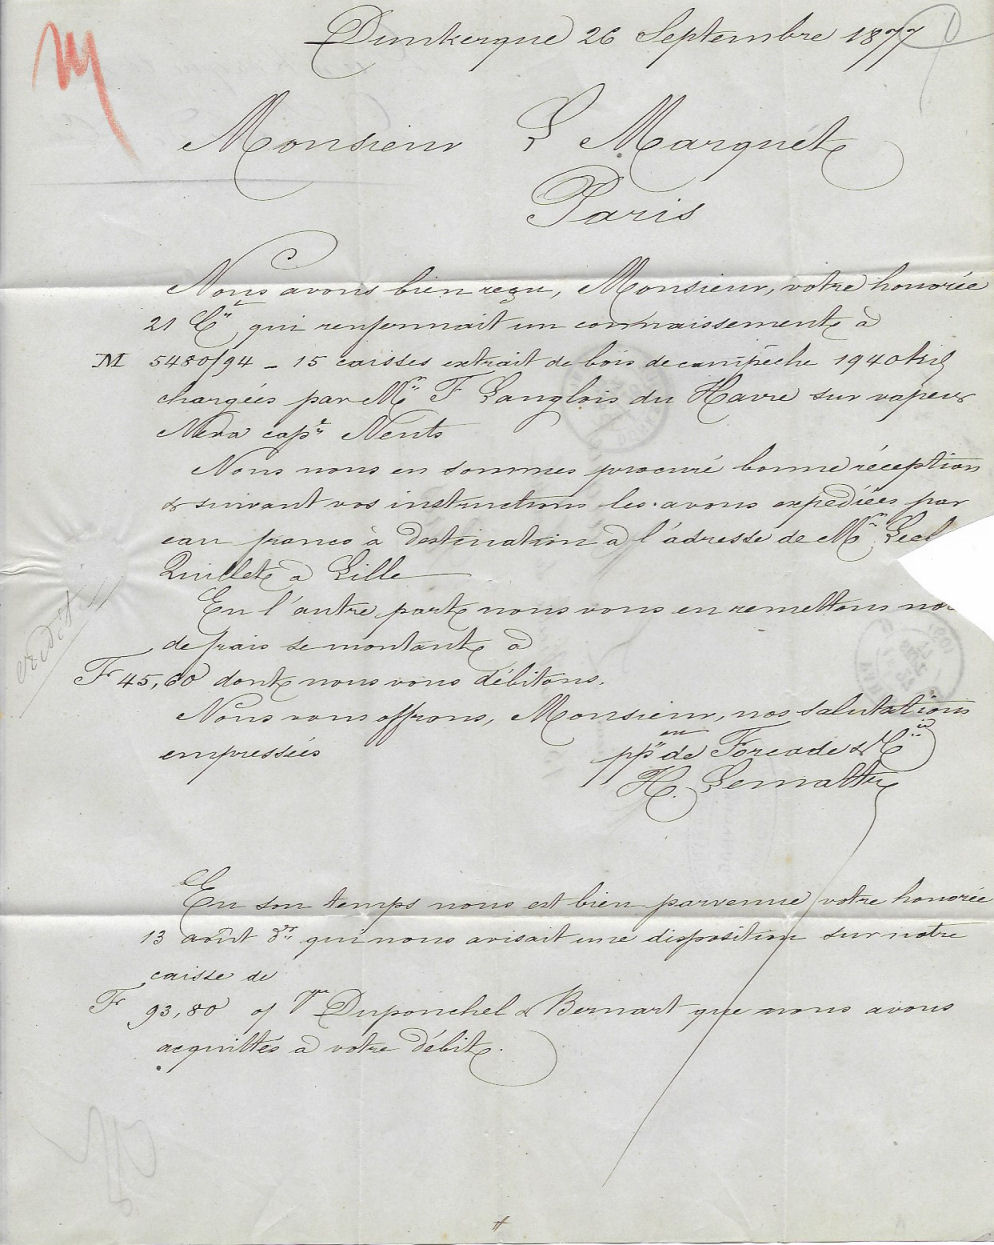 Dunkerque 26 Septembre 1877
Monsieur L Marquet
Paris
Nous avons bien reçu, Monsieur, votre honorée
21 Ct qui renfermait un connaissement à
M 5480/94 – 15 caisses extrait de bois de campêche 1940 kil
chargées par Mr F Langlois du Havre sur vapeur
capne
Nous nous en sommes procuré bonne réception
& suivant vos instructions les avons expédiées par
eau franco à destination à l'adresse de Mr
Quillet à Lille
En l'autre part nous vous en remettons
de frais se montant à
Fr 45,60 dont nous vous débitons.
Nous vous offrons, Monsieur, nos salutations
empressées
ppon de Forcade & Cie
H. Lemaître
En son temps nous est bien parvenue votre honorée
13 août dr qui nous avisait une disposition sur notre
caisse de
Fr 93,80 o/ Duponchel & Bernart que nous avons
acquittés à votre débit.
crédit